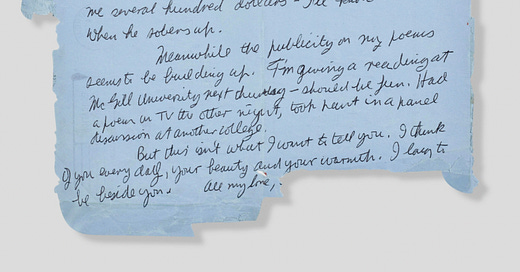 me several hundred dollars - I'll know
when he sobers up.
Meanwhile the publicity on my poems
seems to be building up. I'm giving a reading at
McGill University next thursday - should be fun. Had
a poem on TV the other night, took part in a panel
discussion at another college.
But this isn't what I want to tell you. I think
of you every day, your beauty and your warmth. I long to
be beside you. All my love,